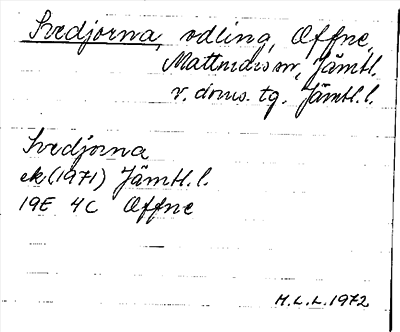 Svedjorna, odling, Œffne,
Mattmars sn, Jämtl.
v. doms. tg. Jämtl. l.
Svedjorna
ek (1971) Jämtl. l.
19E 4C Œffne
H.L.L. 1972